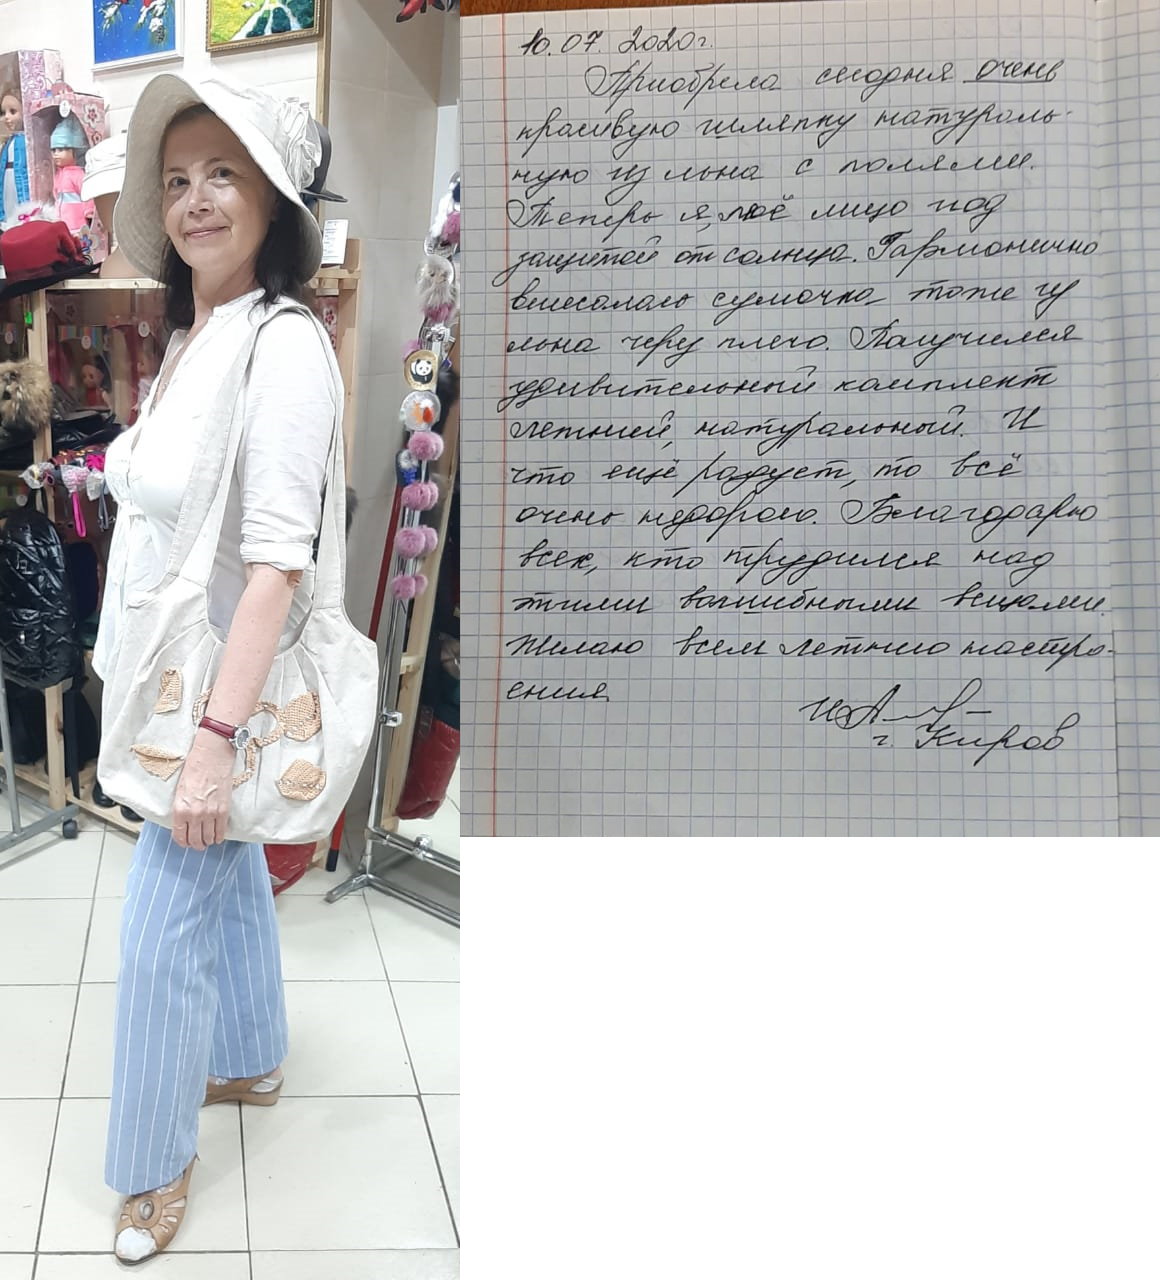 10.07 2020г.
Приобрела сегодня очень
красивую шляпку натураль-
ную из льна с полями.
Теперь я, моё лицо под
защитой от солнца. Гармонично
вписалась сумочка тоже из
льна через плечо. Получился
удивительный комплект
летний, натуральный. И
что ещё радует, то всё
очень недорого. Благодарю
всех, кто трудился над
этими волшебными вещами.
Желаю всем летнего настро-
ения
г. Киров